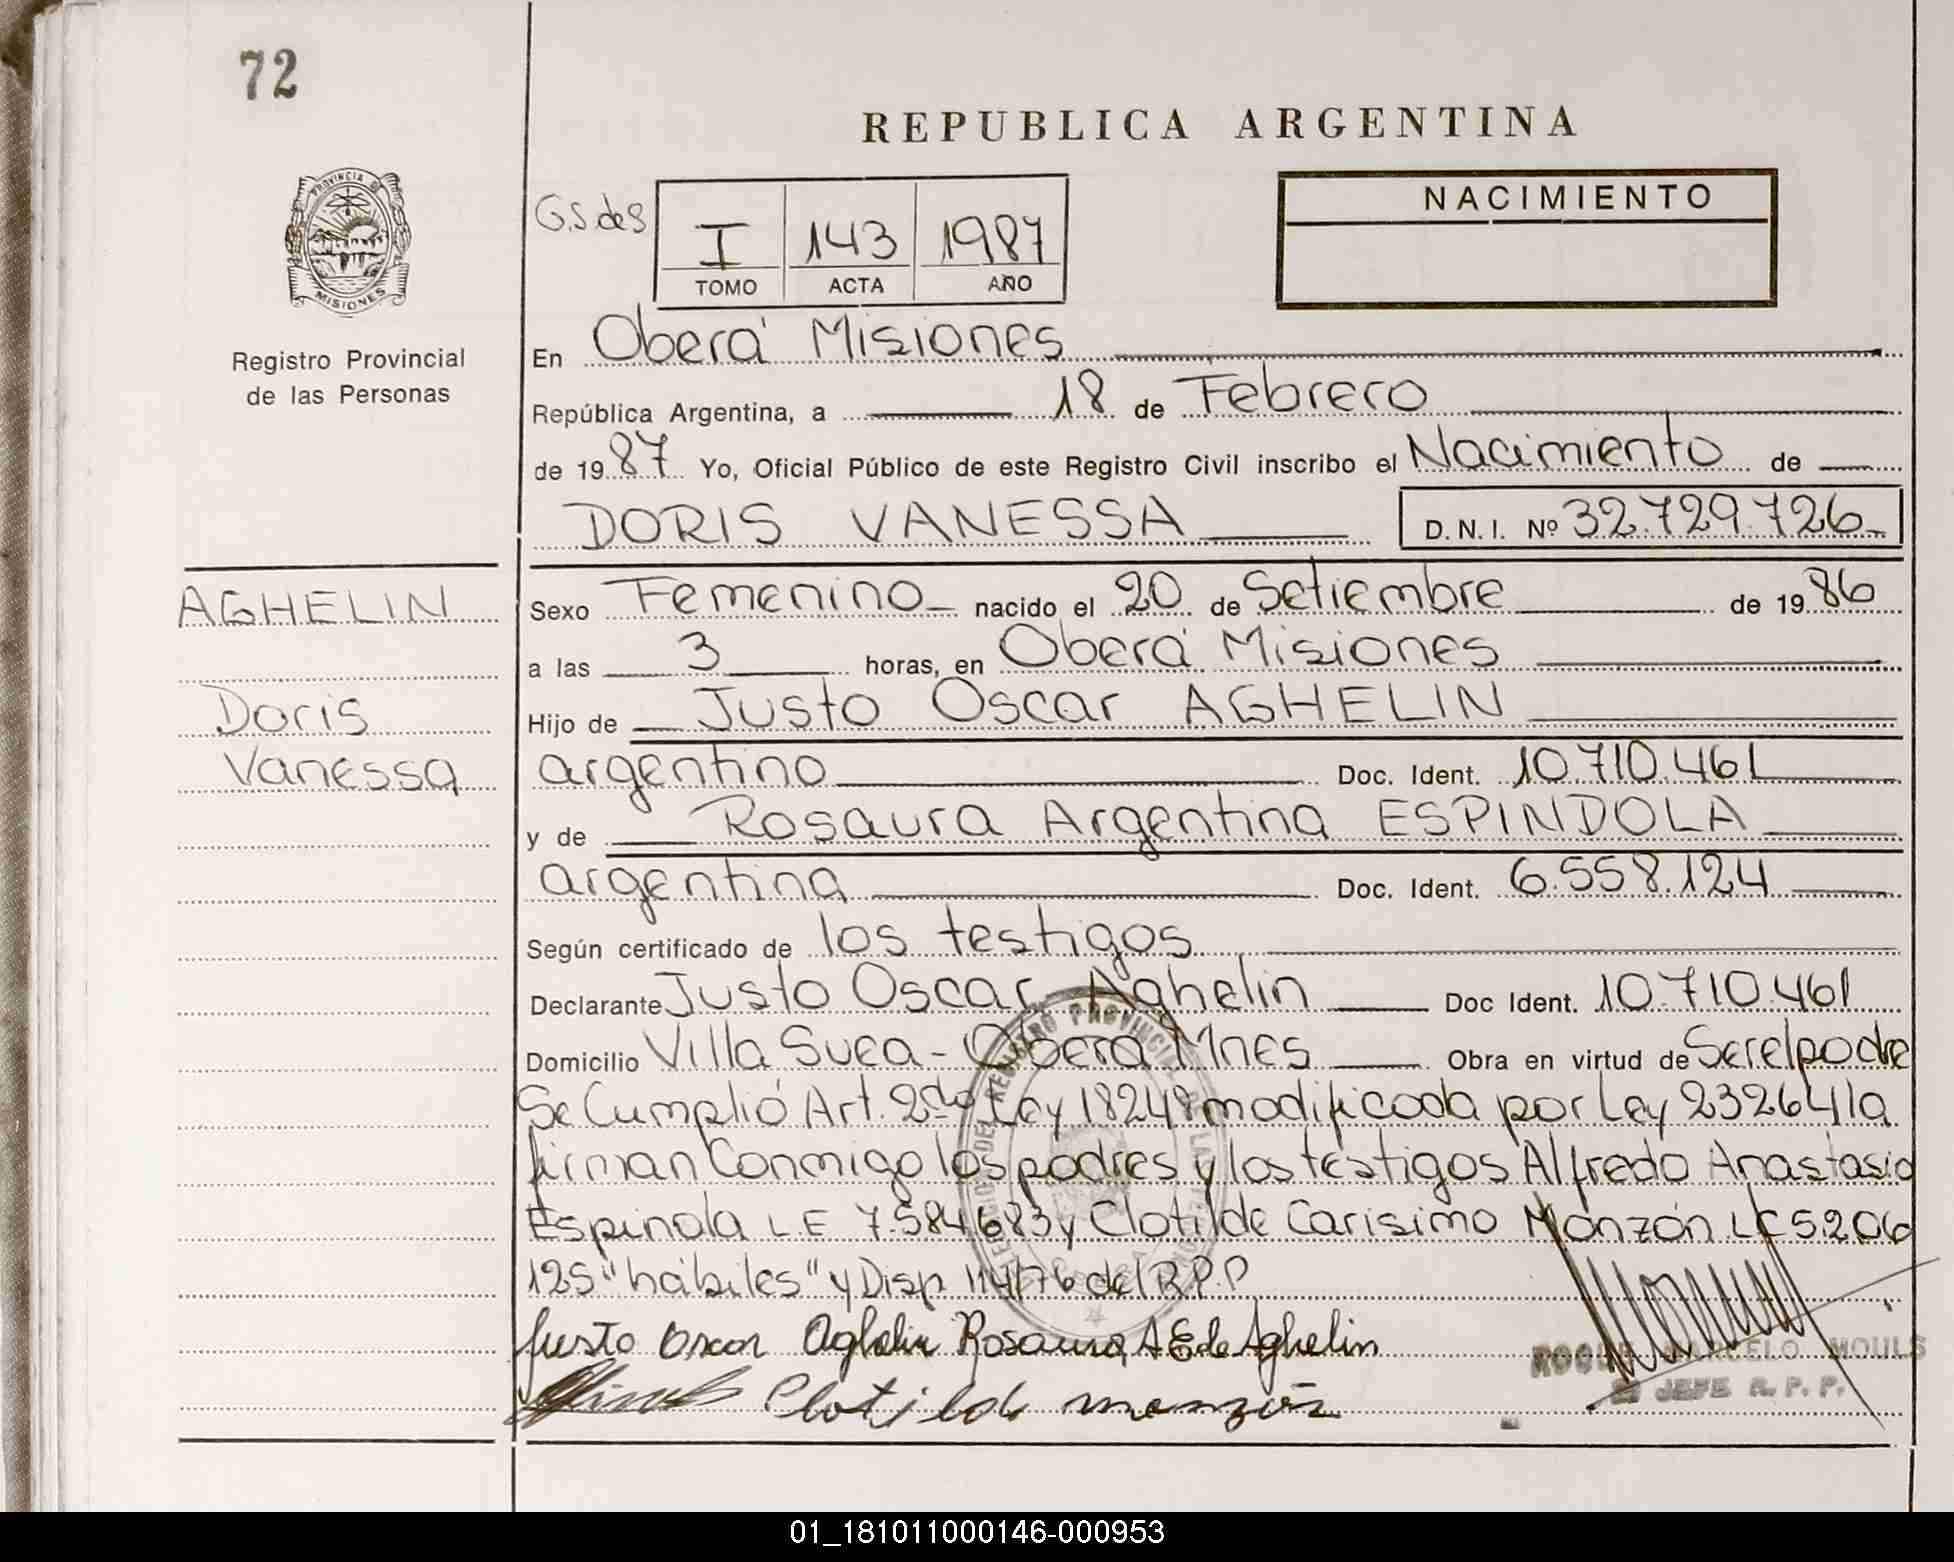 72
REPUBLICA ARGENTINA
PROVINCIA DE
MISIONES
Registro Provincial
de las Personas
G.S de S
I 143 1987
TOMO ACTA AÑO
NACIMIENTO
En Oberá Misiones
República Argentina, a 18 de Febrero
de 1987 Yo, Oficial Público de este Registro Civil inscribo el Nacimiento de
DORIS VANESSA D.N.I. Nº 32.729.726
AGHELIN
Doris
Vanessa
Sexo Femenino nacido el 20 de Setiembre de 1986
a las 3 horas, en Oberá Misiones
Hijo de Justo Oscar AGHELIN
argentino Doc. Ident. 10.710.461
y de Rosaura Argentina ESPINDOLA
argentina Doc. Ident. 6.558.124
Según certificado de los testigos
Declarante Justo Oscar Aghelin Doc Ident. 10.710.461
Domicilio Villa Suea - Oberá Mnes Obra en virtud de Ser el padre
Se Cumplió Art. 2do Ley 18248 modificada por Ley 23264 la
firman Conmigo los padres y los testigos Alfredo Anastasio
Espinola L.E 7.584.683 y Clotilde Carisimo Monzón LC 5.206
125 "hábiles" y Disp 114/76 del R.P.P
Justo Oscar Aghelin Rosaura A E de Aghelin
Clotilde monzón
ROQUE MARCELO MOULS
JEFE R. P. P.
01_181011000146-000953